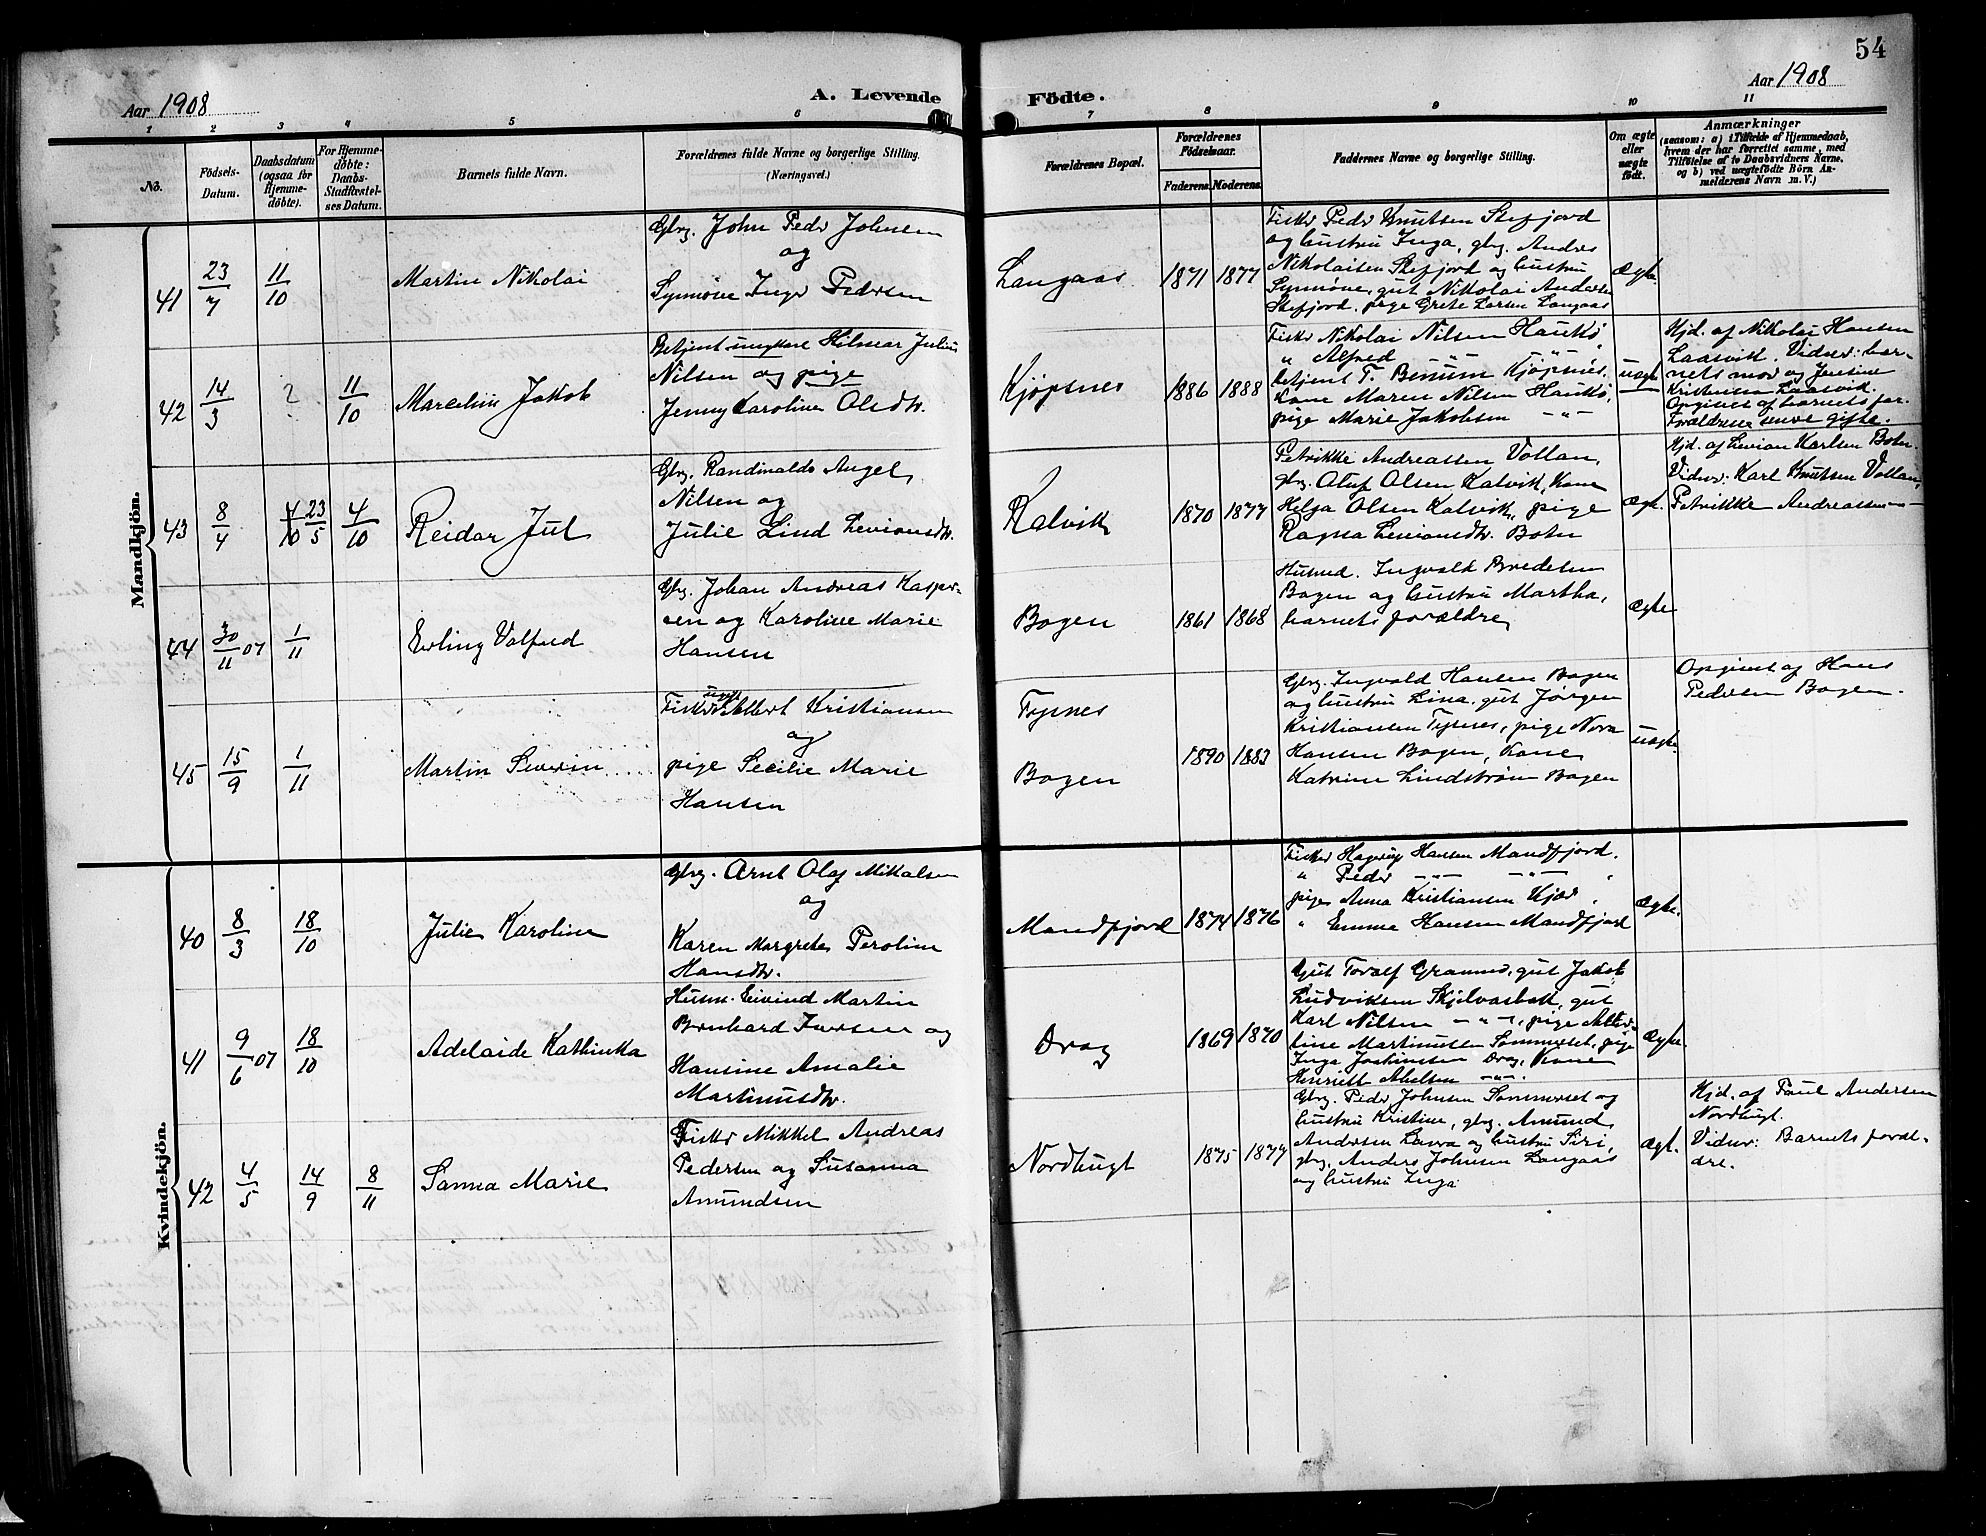 54
Aar 1908
A. Levende
Födte.
Aar 1908
1 2 3 4 5 6 7 8 9 10 11
No.
Födsels-
Datum.
Daabsdatum
(ogsaa for
Hjemme-
döbte).
For Hjemme-
döbte:
Daabs-
Stadfæstel-
ses Datum.
Barnets fulde Navn.
Forældrenes fulde Navne og borgerlige Stilling.
(Næringsvei.)
Forældrenes Bopæl.
Forældrenes
Födselsaar.
Faderens.
Moderens.
Faddernes Navne og borgerlige Stilling.
Om ægte
eller
uægte
født.
Anmærkninger
(saasom: a) i Tilfælde af Hjemmedaab,
hvem der har forrettet samme, med
Tilföielse af to Daabsvidners Navne,
og b) ved uægtefödte Börn An-
melderens Navn m. V.)
Mandkjön.
41
23/7
11/10
Martin Nikolai
Gbrg. John Peder Johnsen
og
Synnöve Inger Pedersen
Langaas
1871
1877
Fisker Peder Knutsen Stefjord
og hustru Inga, gbrg. Andres
Nikolaisen Stefjord og hustru
Synnöve, gut Nikolai Andersen
Stefjord, pige Grete Larsen Langaas
Ægte
42
14/3
?
11/10
Marcelius Jakob
Betjent ungkarl Hilmar Julius
Nilsen og pige
Jenny Karoline Olsdtr.
Kjöpsnes
1886
1888
Fisker Nikolai Nilsen Haukö,
" Alfred " "
betjent T. Benum Kjöpsnes,
Kone Maren Nilsen Haukö,
pige Marie Jakobsen — " —
uægte
Hjd. af Nikolai Hansen
Laasvik. Vidner: bar-
nets mor og Jensine
Kristensen Laasvik.
Opgivet af barnets far.
Forældrene senere gifte.
43
8/4
4/10 23/5
4/10
Reidar Jul
Gbrg. Randinaldo Angel
Nilsen og
Julie Lind Levionsdtr.
Kalvik
1870
1877
Petrikke Andreassen Vollan,
gbrg. Oluf Olsen Kalvik, Kone
Helga Olsen Kalvik, pige
Ragna Levionsdtr. Botn
ægte.
Hjd. af Levion Karlsen Botn.
Vidner: Karl Knutsen Vollan,
Petrikke Andreassen — " —
44
30/11 07
1/11
Erling Valfred
Gbrg. Johan Andreas Kasper-
sen og Karoline Marie
Hansen
Bogen
1861
1868
Husmd. Ingvald Bredesen
Bogen og hustru Martha,
barnets forældre
Ægte
45
15/9
1/11
Martin Severin
Fisker ungk. Albert Kristiansen
og
pige Secilie Marie
Hansen
Tysnes
Bogen
1890
1883
Gbrg. Ingvald Hansen Bogen
og hustru Lina, gut Jörgen
Kristiansen Tysnes, pige Nora
Hansen Bogen, Kone
Katrine Lindström Bogen
uægte
Opgivet af Hans
Pedersen Bogen.
Kvindekjön.
40
8/3
18/10
Julie Karoline
Gbrg. Arnt Olaf Mikalsen
og
Karen Margrete Peroline
Hansdtr.
Mandfjord
1874
1876
Fisker Hagerup Hansen Mandfjord.
" Peder — " — — " —
pige Anna Kristiansen Kjær.
" Emma Hansen Mandfjord
Ægte.
41
9/6 07
18/10
Adelaide Kathinka
Husm. Eivind Martin
Bernhard Iversen og
Hansine Amalie
Martinusdtr.
Drag
1869
1870
Gut Toralf Grannes, gut Jakob
Ludviksen Skjelvasbak, gut
Karl Nilsen — " —, pige Albert-
ine Martinussen Sommerset, pige
Inga Joakimsen Drag, Kone
Henriette Abelsen — " —
Ægte
42
4/5
14/9
8/11
Sanna Marie
Fisker Mikkel Andreas
Pedersen og Susanna
Amundsen
Nordbugt
1875
1877
Gbrg. Peder Johnsen Sommerset og
hustru Kristine, gbrg. Amund
Andersen Larra og hustru Siri,
gbrg. Anders Johnsen Langaas
og hustru Inga
ægt.
Hjd. af Paul Andersen
Nordbugt.
Vidner: Barnets foræl-
dre.